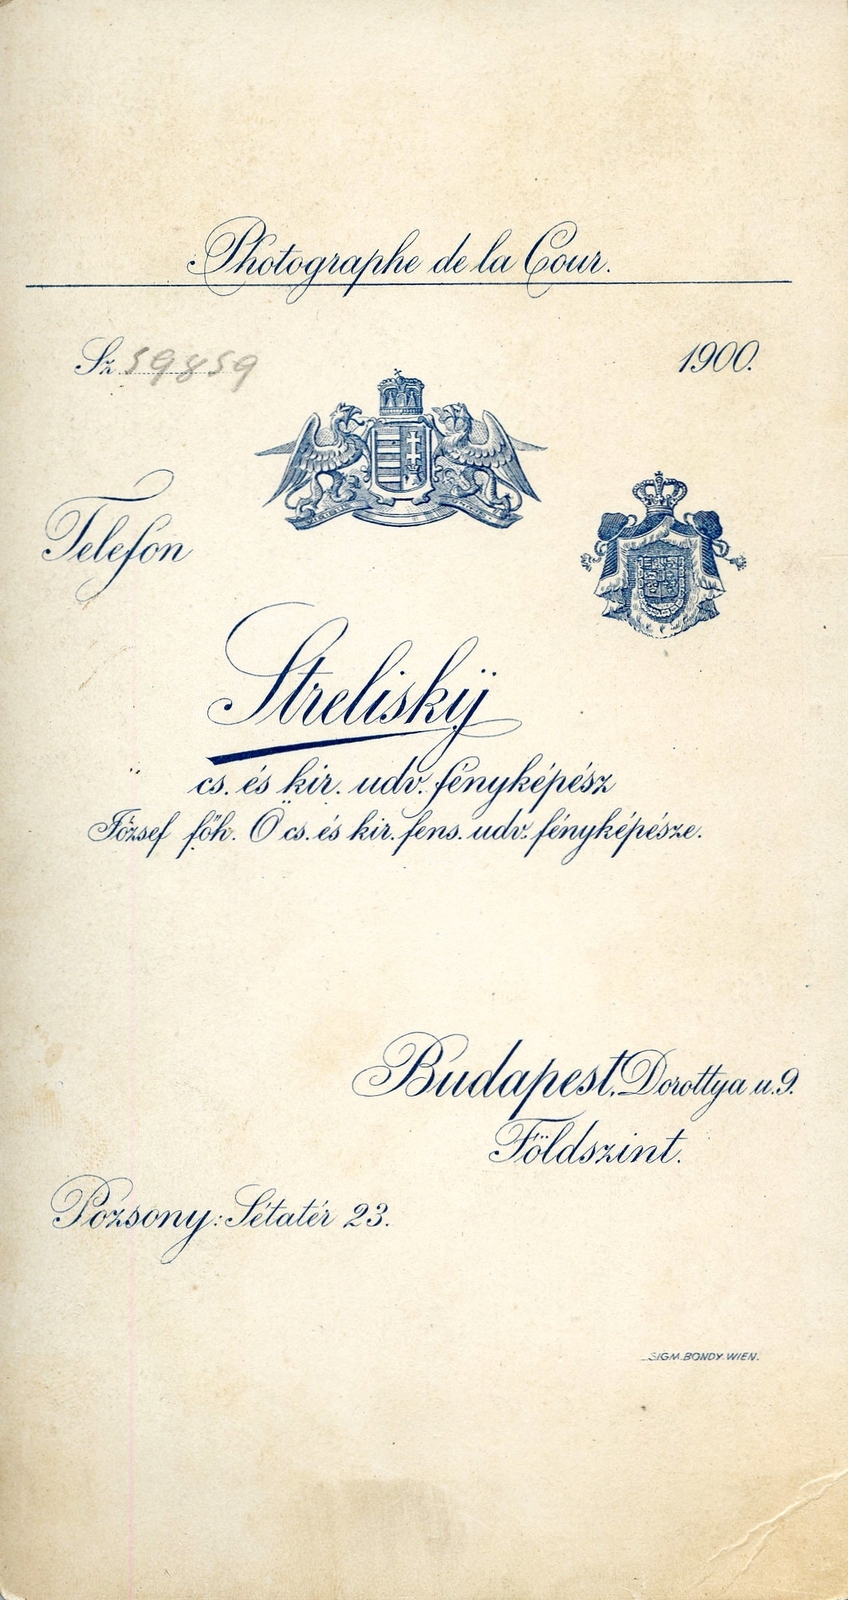 Photographe de la Cour.
Sz 59859
1900.
Telefón
Streliskÿ
cs. és kir. udv. fényképész
József főh. Ő cs. és kir. fens. udv. fényképésze.
Budapest, Dorottya u. 9.
Földszint.
Pozsony: Sétatér 23.
SIGM. BONDY. WIEN.